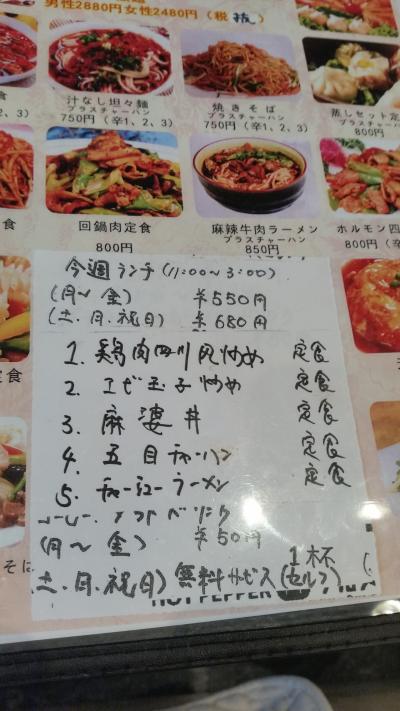 男性2880円女性2480円(税抜)
汁なし坦々麺
プラスチャーハン
750円(辛1、2、3)
焼きそば
プラスチャーハン
750円(辛1、2、3)
蒸しセット定
プラスチャーハン
800円
回鍋肉定食
800円
麻辣牛肉ラーメン
プラスチャーハン
850円
ホルモン四
800円(辛
今週ランチ(11:00~3:00)
(月~金) ¥550円
(土.日.祝日) ¥680円
1. 鶏肉四川風炒め 定食
2. エビ玉子炒め 定食
3. 麻婆丼 定食
4. 五目チャーハン 定食
5. チャーシューラーメン 定食
(月~金) ¥50円
1杯
土.日.祝日) 無料サービス(セルフ)
HOT PEPPER